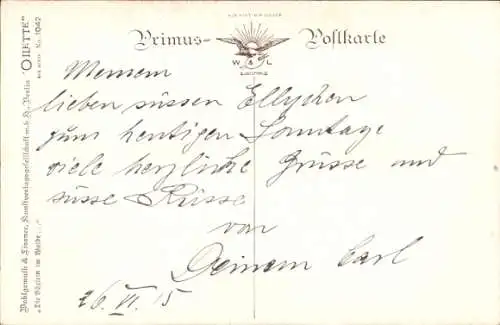 Primus- Postkarte
W & L
Meinem
lieben süssen Ellychen
zum heutigen Sonntage
viele herzliche Grüsse und
süsse Küsse
von
Deinem Carl
26. VI. 15
Wohlgemuth & Lissner, Kunstverlagsgesellschaft m. b. H., Berlin "OILETTE" No. 1042